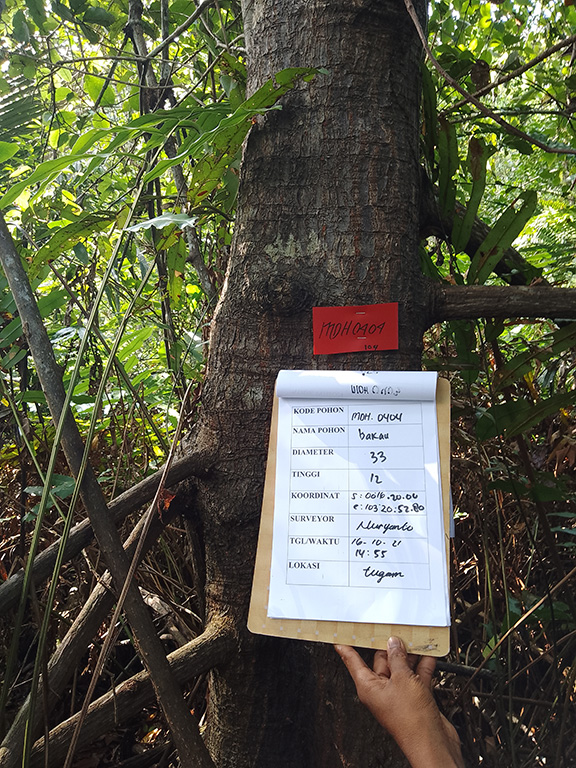 MDH0404
KODE POHON MDH. 0404
NAMA POHON bakau
DIAMETER 33
TINGGI 12
KOORDINAT S: 0016.20.06
e: 103.20.52.80
SURVEYOR Nuryanto
TGL/WAKTU 16-10-21
14:55
LOKASI tugam